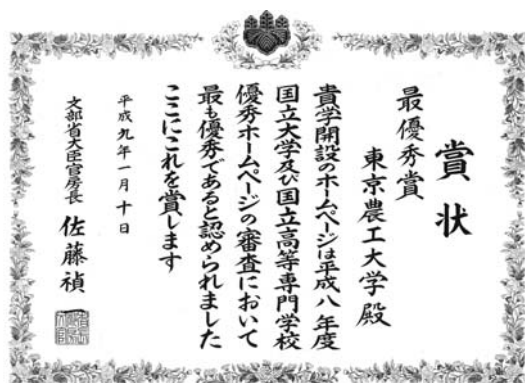 賞状
最優秀賞
東京農工大学殿
貴学開設のホームページは平成八年度
国立大学及び国立高等専門学校
優秀ホームページの審査において
最も優秀であると認められました
ここにこれを賞します
平成九年一月十日
文部省大臣官房長 佐藤禎